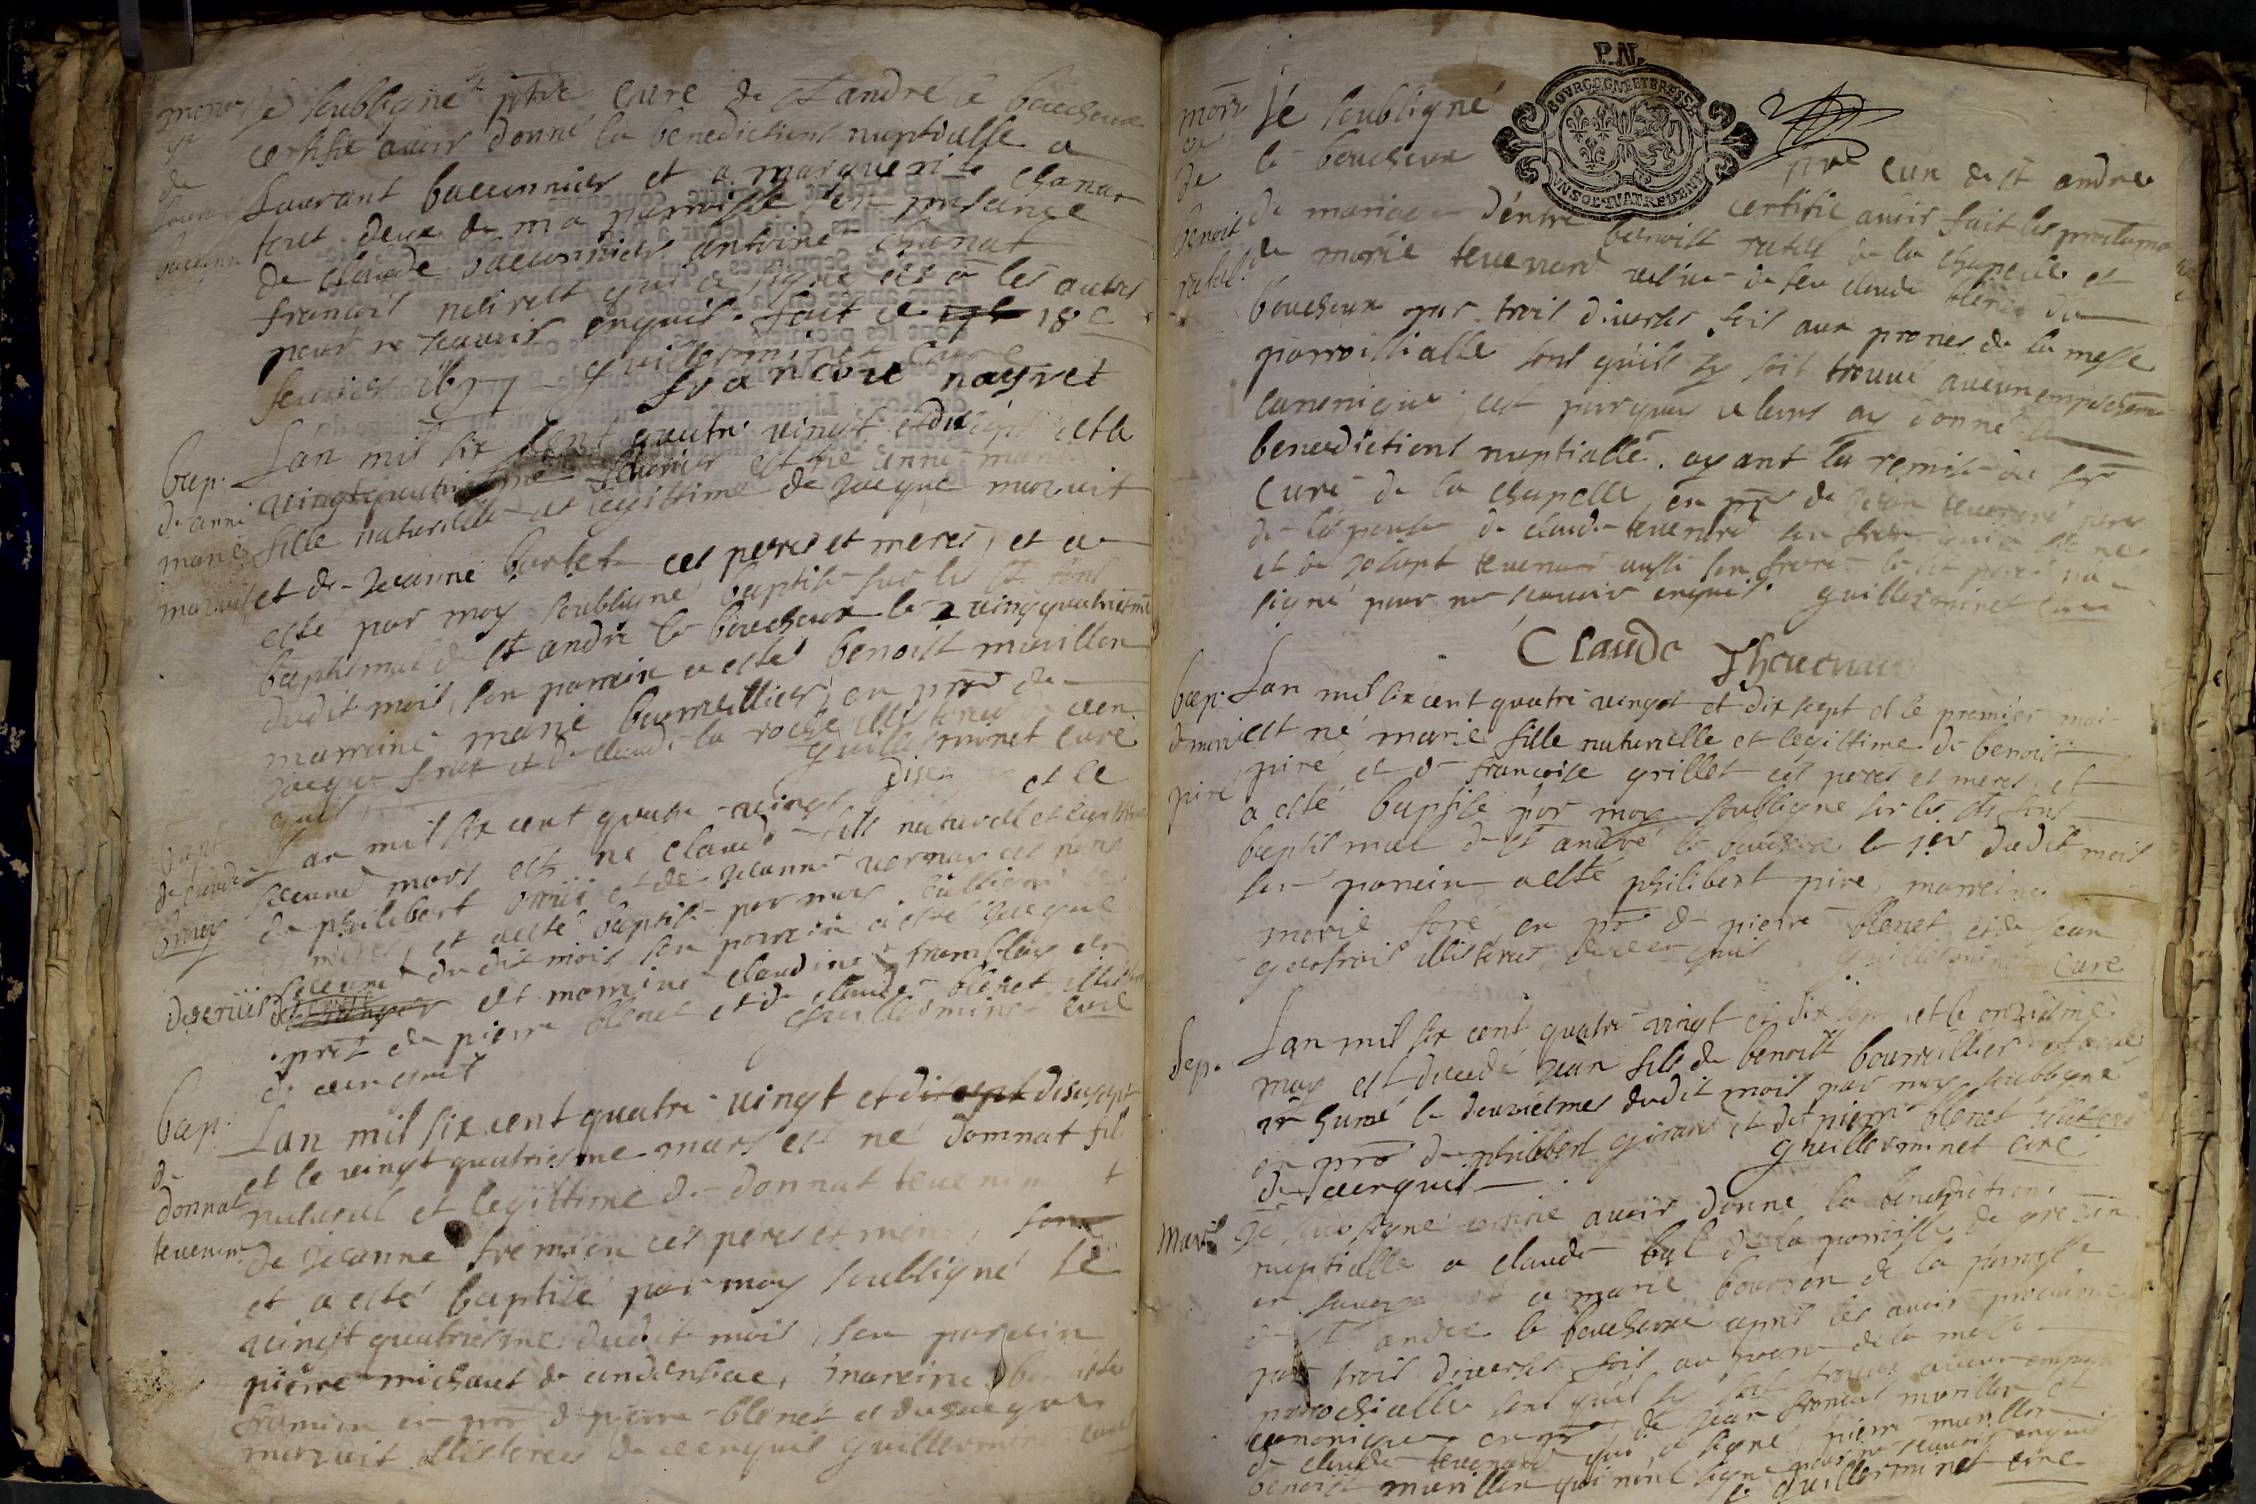 je soubsigné ptre curé de st andre le boucheux
certifie avoir donné la benediction nuptialle a
Laurant baconnier et a marguerite chanat
tout deux de ma paroisse en presance
de claude baconnier antoine chanat
francois neiret qui a signé et les autres
pour ne scavoir enquis. fait ce 18e
fevrier 1697 guillerminet curé
francoie nayret
bap. Lan mil six cent quatre vingt et dix sept et le
de anne vingtquatriesme fevrier est né anne marie
marie fille naturelle et legittime de Jacque mazuit
mazuit et de Jeanne burlet ces peres et meres, et a
esté par moy soubsigné baptisé sur les st fons
baptismal de st andre le boucheux le vingquatriesme
dudit mois, son parrein a esté benoist murillon
marreine marie bourcellier, en prce de
Jacque foret et de claude la roche illisteres de ce en
quis guillerminet curé
Lan mil six cent quatre vingt dise et le
de claude second mars est né claude fils naturel et legittime
de philibert et de Jeanne vernas ces peres
meres, et a esté baptisé par moy soubsigné le
second dudit mois son parrein a esté Jacque
deseriis et marreine claudine tramblay en
prce de pierre blenet et de claude blenet illisteres
de ce enquit guillerminet curé
bap. Lan mil six cent quatre vingt et disept disusept
de et le vingt quatriesme mars est né donnat fils
donnat naturel et legittime de donnat tevenin et
tevenin de Jeanne fremion ces peres et meres,
et a esté baptisé par moy soubsigné le
vingt quatriesme dudit mois, son parrein
pierre michaut de condensiac, mareine benoiste
framion en prce de pierre blenet et de Jacques
mazuit illisteres de ce enquis guillerminet curé
P.N.
BOURGOGNE ET BRESSE
UN SOL QUATRE DEN
Jé soubsigné
le boucheux ptre curé de st andre
certifie avoir fait les proclama
benoit de mariage dentre benoist ratel de la chapelle et
ratel. de marie tevenard vefve de feu claude blenet du
boucheux par trois diverses fois aux prones de la messe
parroissialle sans quils sy soit trouvé aucun empeschem
canonique, cest pourquoy je leurs ay donné la
benediction nuptialle. ayant la remise du sr
curé de la chapelle, en prce de Jean tevenard pere
de lespouse de claude tevenard son frere qui a signé
et de Josept tevenard aussi son frere le dit pere na
signé pour ne scavoir enquis. guillerminet curé
Claude Thevenard
bap. Lan mil six cent quatre vingt et dix sept et le premier mai
de marie est né marie fille naturelle et legittime de benoist
piré piré et de francoise grillet ces peres et meres, et
a esté baptisé par moy soubsigné sur les sts fons
baptismal de st andré le boucheux le 1er dudit mois
son parrein a esté philibert piré, marreine
marie foré, en prce de pierre blenet et de Jean
geofrois illisteres de ce enquis guillerminet curé
Sep. Lan mil six cent quatre vingt et dix sept et le onziesme
may est decedé Jean fils de benoist bourcellier et a esté
in humé le douziesmes dudit mois par moy soubsigné
en prce de philibert girard et de pierre blenet illisteres
de ce enquis guillerminet curé
Mar Je soubsigné certifie avoir donné la benediction
nuptialle a claude bal de la parroisse de grezin
en savoye et a marie bourdon de la paroisse
de st andre le boucheux apres les avoir proclamé
par trois diverses fois au prone de la messe
parrochialle sans quil sy soit trouvé aucun empesch
canonique en prce de Jean francois murillon et
de claude tevenard qui a signé, pierre murillon
benoist murillon qui nont signé pour ne scavoir enquis
guillerminet curé